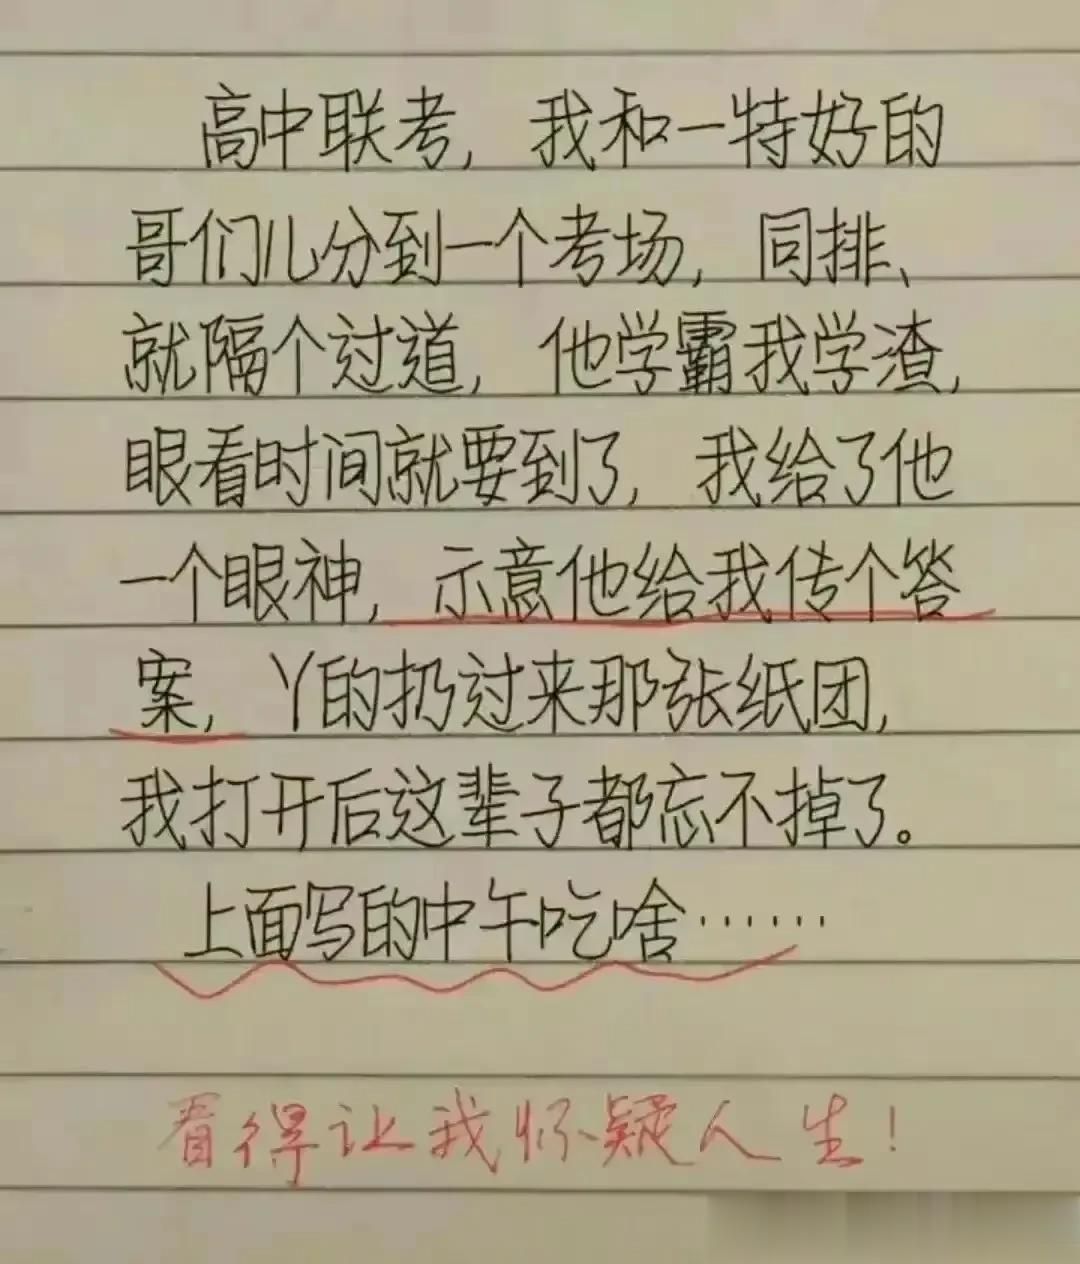 高中联考，我和一特好的
哥们儿分到一个考场，同排、
就隔个过道，他学霸我学渣，
眼看时间就要到了，我给了他
一个眼神，示意他给我传个答
案，丫的扔过来那张纸团，
我打开后这辈子都忘不掉了。
上面写的中午吃啥……
看得让我怀疑人生！